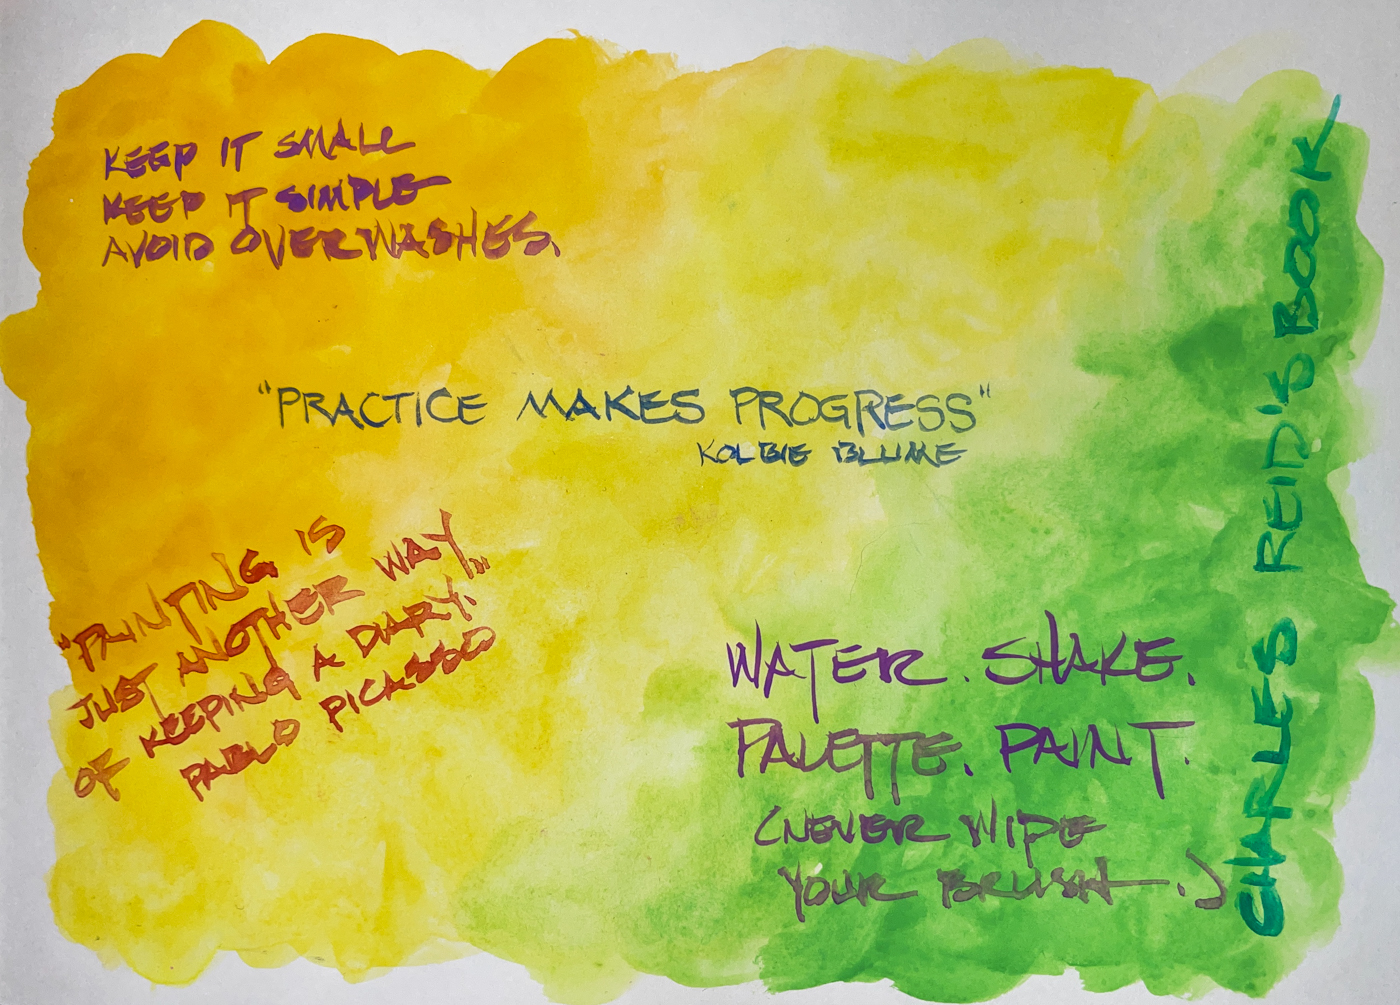 KEEP IT SMALL
KEEP IT SIMPLE
AVOID OVERWASHES.
"PRACTICE MAKES PROGRESS"
KOLBIE BLUME
"PAINTING IS
JUST ANOTHER WAY
OF KEEPING A DIARY."
PABLO PICASSO
WATER. SHAKE.
PALETTE. PAINT.
(NEVER WIPE
YOUR BRUSH.)
CHARLES REID'S BOOK